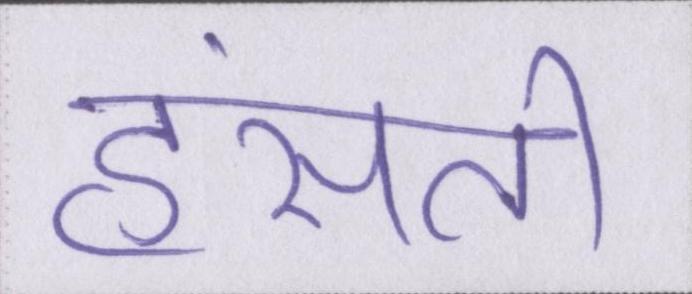 हंसती